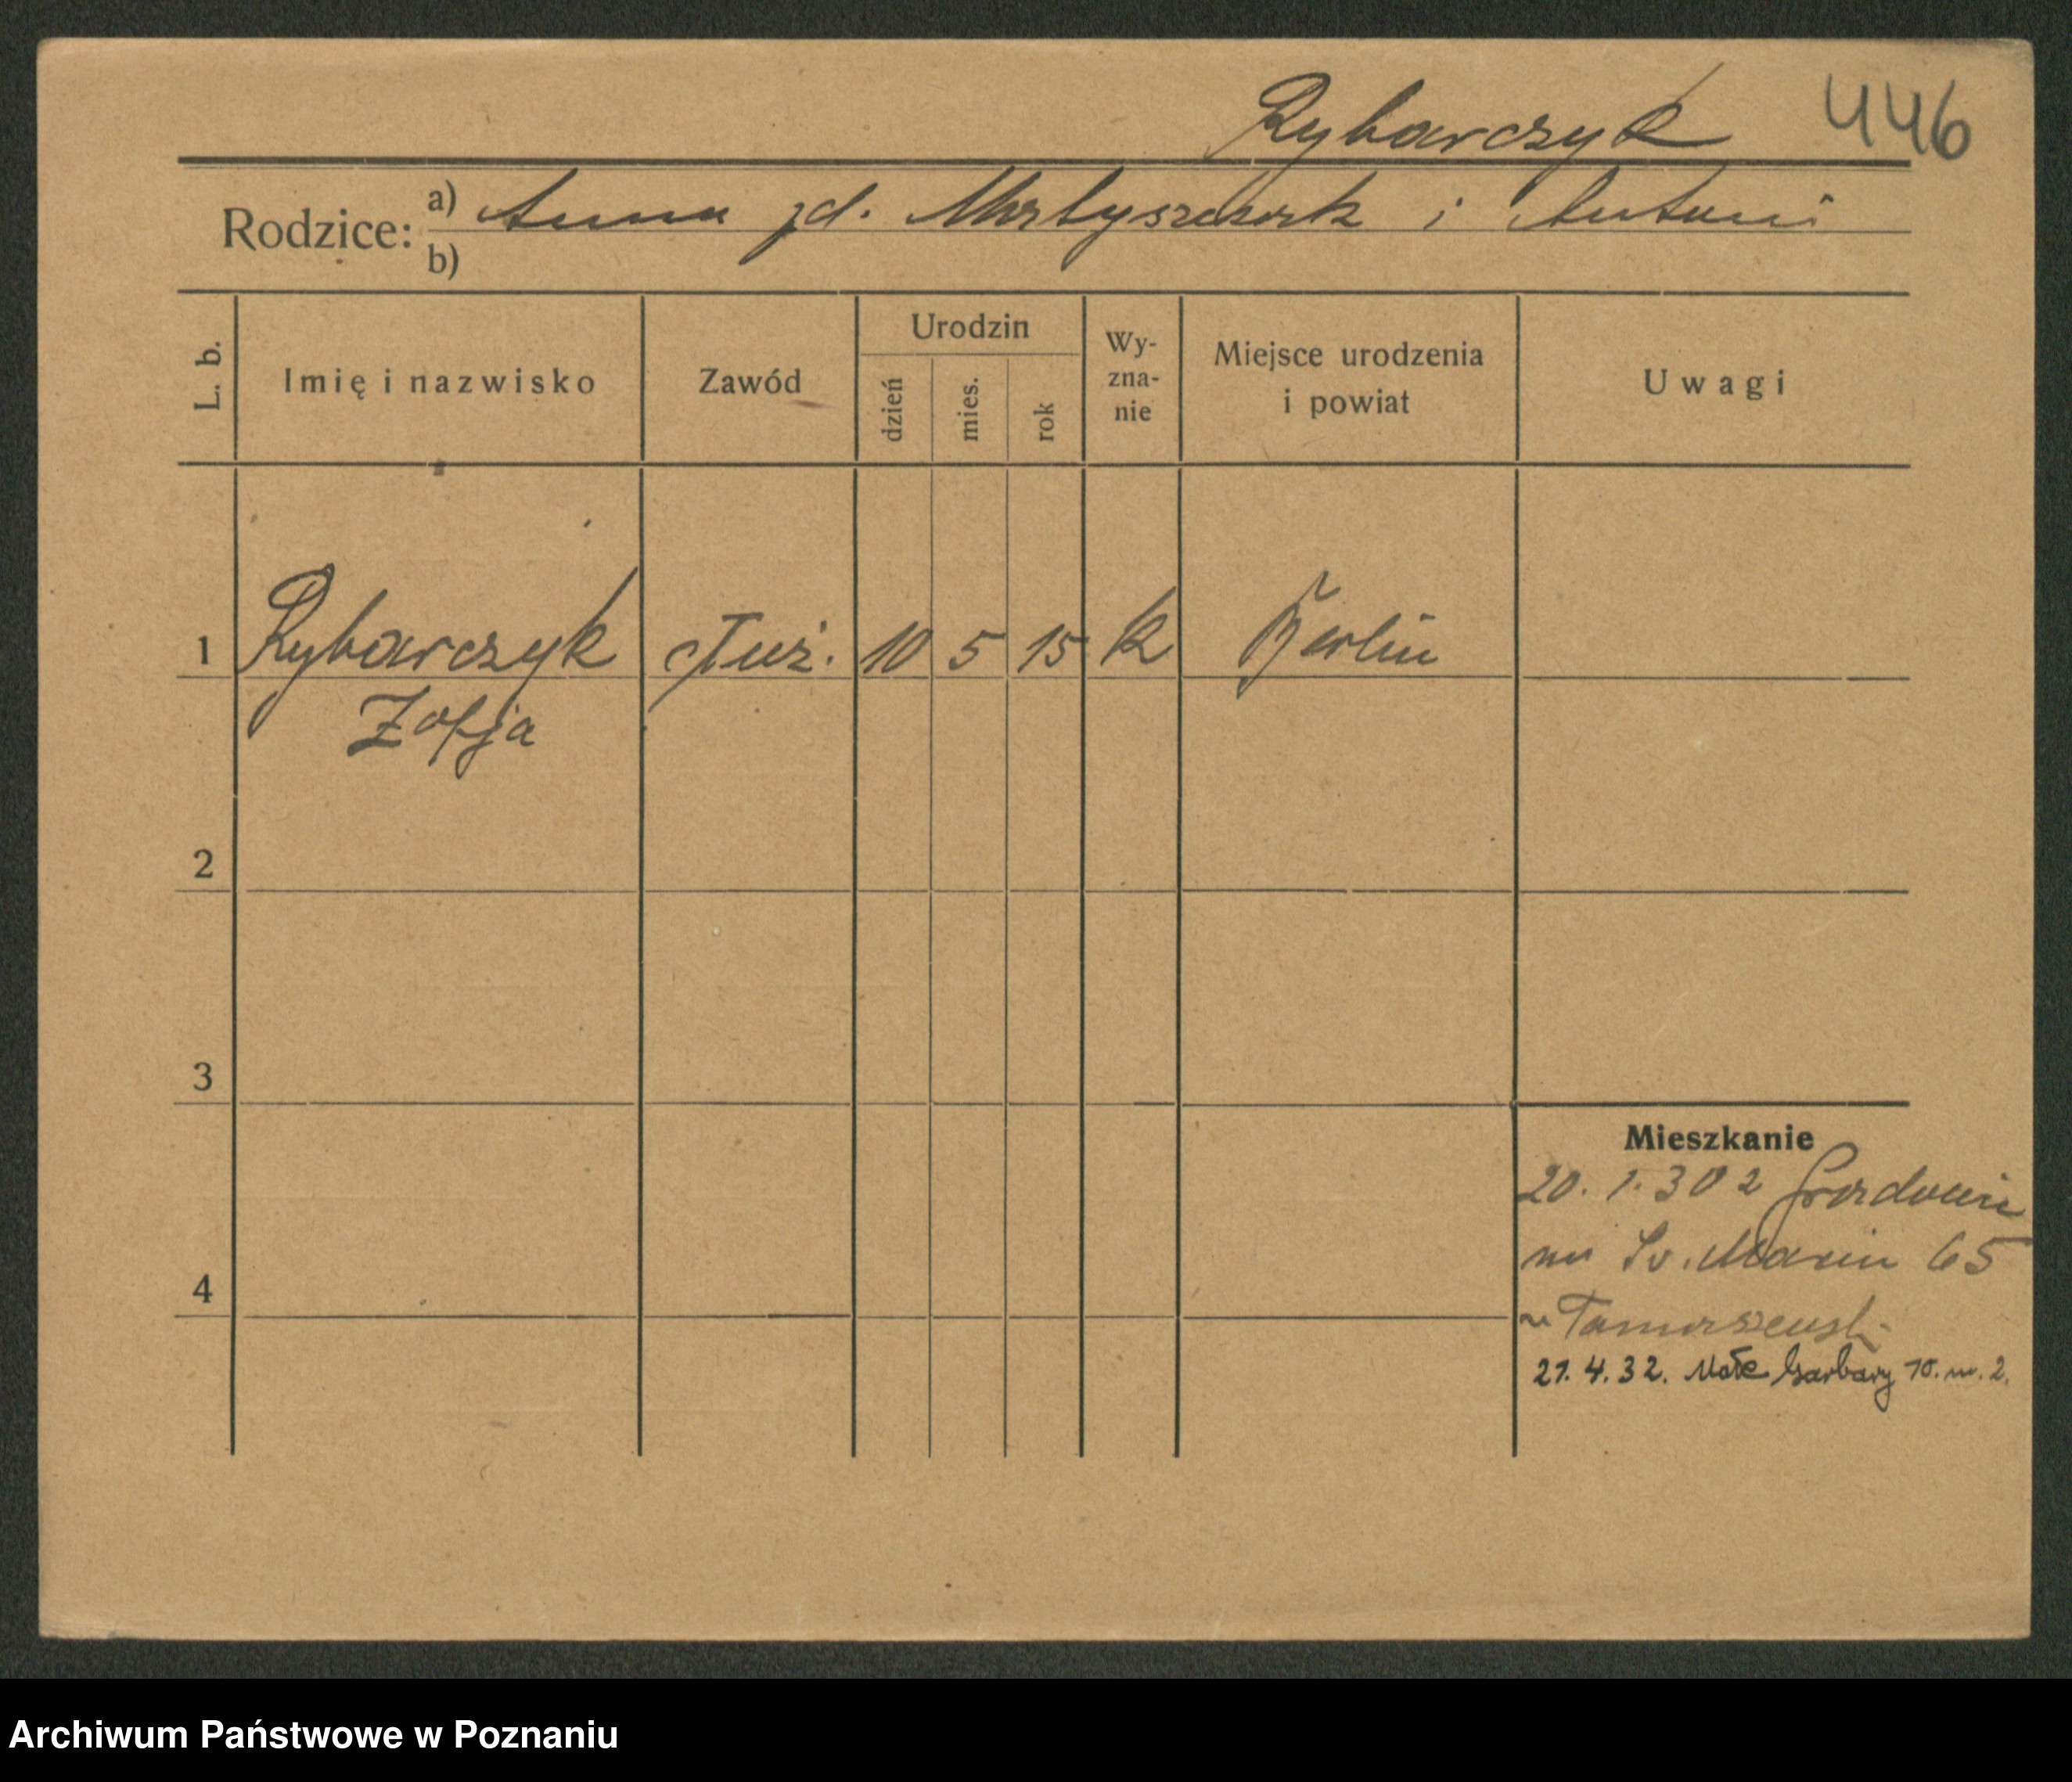 Rybarczyk 446
Rodzice: a) Anna zd. Matyszczak i Antoni
b)
L. b. Imię i nazwisko Zawód Urodzin dzień mies. rok Wy-zna-nie Miejsce urodzenia i powiat Uwagi
1 Rybarczyk Służ. 10 5 15 k Berlin
Zofja
2
3
Mieszkanie
20. 1. 302
na Św. Marcin 65
4
u
21. 4. 32. Małe Garbary 10. m. 2.
Archiwum Państwowe w Poznaniu